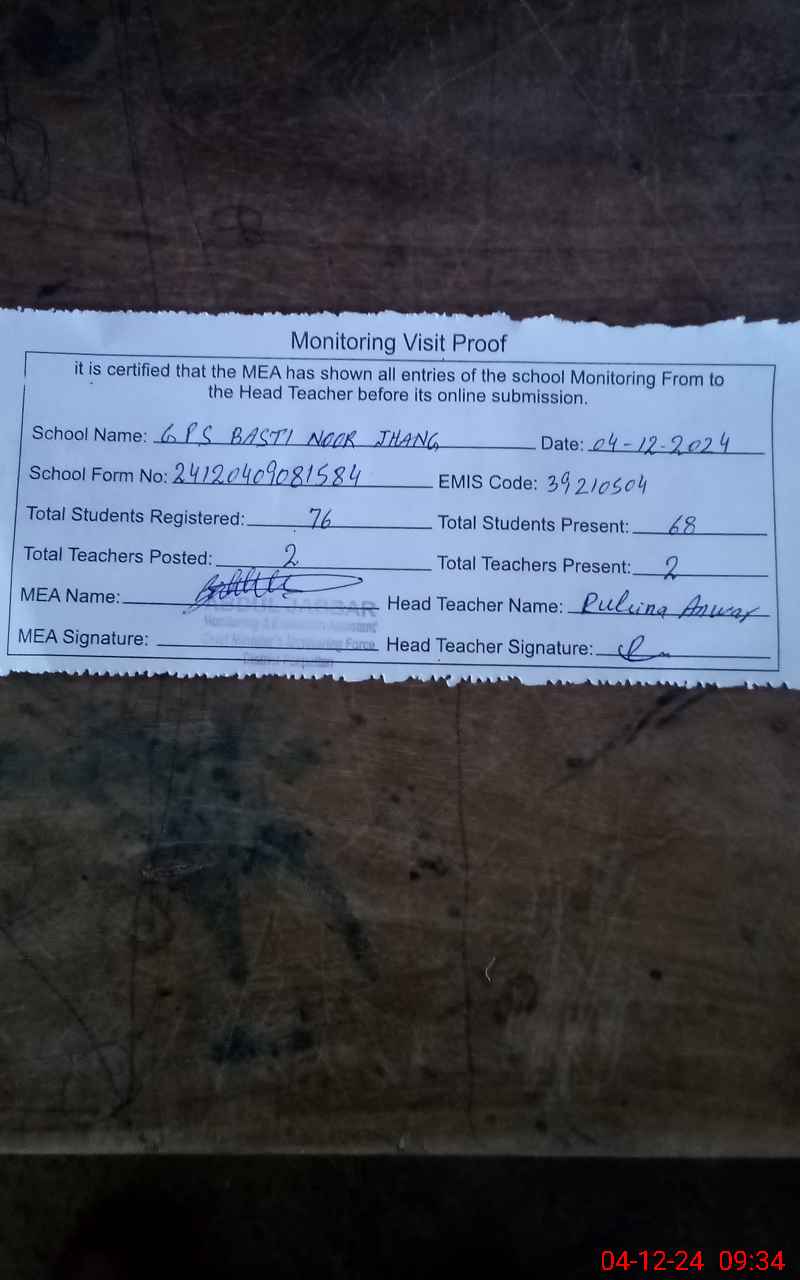 Monitoring Visit Proof
it is certified that the MEA has shown all entries of the school Monitoring From to
the Head Teacher before its online submission.
School Name: GPS BASTI NOOR JHANG Date: 04-12-2024
School Form No: 24120409081584 EMIS Code: 39210504
Total Students Registered: 76 Total Students Present: 68
Total Teachers Posted: 2 Total Teachers Present: 2
MEA Name: ABDUL JABBAR Head Teacher Name: Anwar
Monitoring & Evaluation Assistant
Chief Minister's Monitoring Force
MEA Signature: Head Teacher Signature:
District
04-12-24 09:34